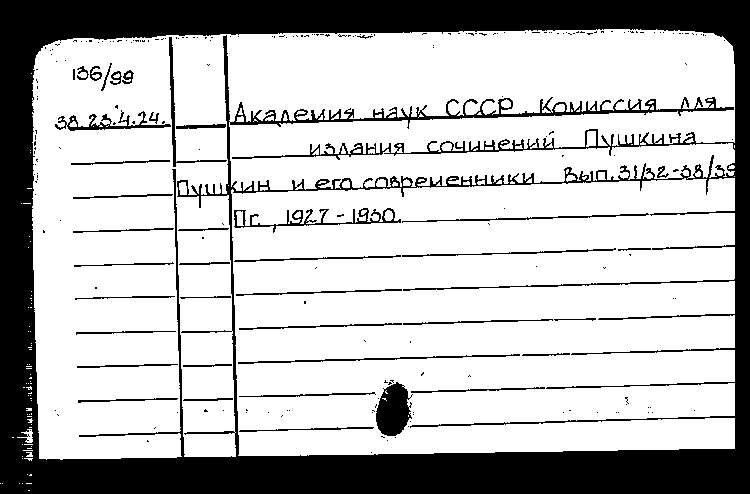 136/99
38.23.4.24. Академия наук СССР. Комиссия для
издания сочинений Пушкина
Пушкин и его современники Вып.31/32-38/39
Пг., 1927-1930.